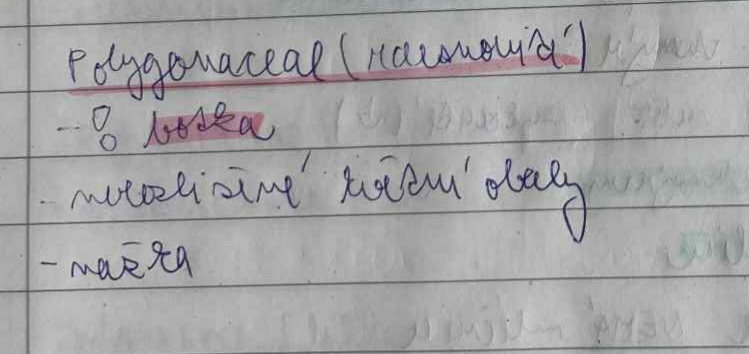 Polygonaceae (rdesnovité)
- ! botka
- nerozlišené květní obaly
- nažka